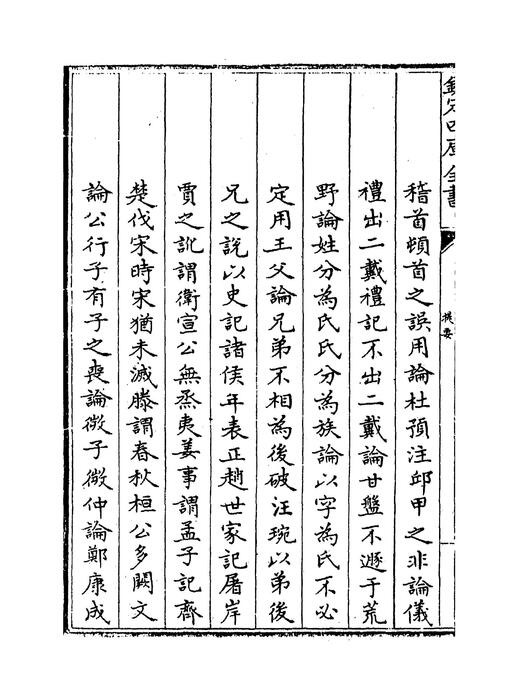 欽定四庫全書
提要
稽首頓首之誤用論杜預注邱甲之非論儀
禮出二戴禮記不出二戴論甘盤不遯于荒
野論姓分為氏氏分為族論以字為氏不必
定用王父論兄弟不相為後破汪琬以弟後
兄之說以史記諸侯年表正趙世家記屠岸
賈之訛謂衛宣公無烝夷姜事謂孟子記齊
楚伐宋時宋猶未滅滕謂春秋桓公多闕文
論公行子有子之喪論微子微仲論鄭康成